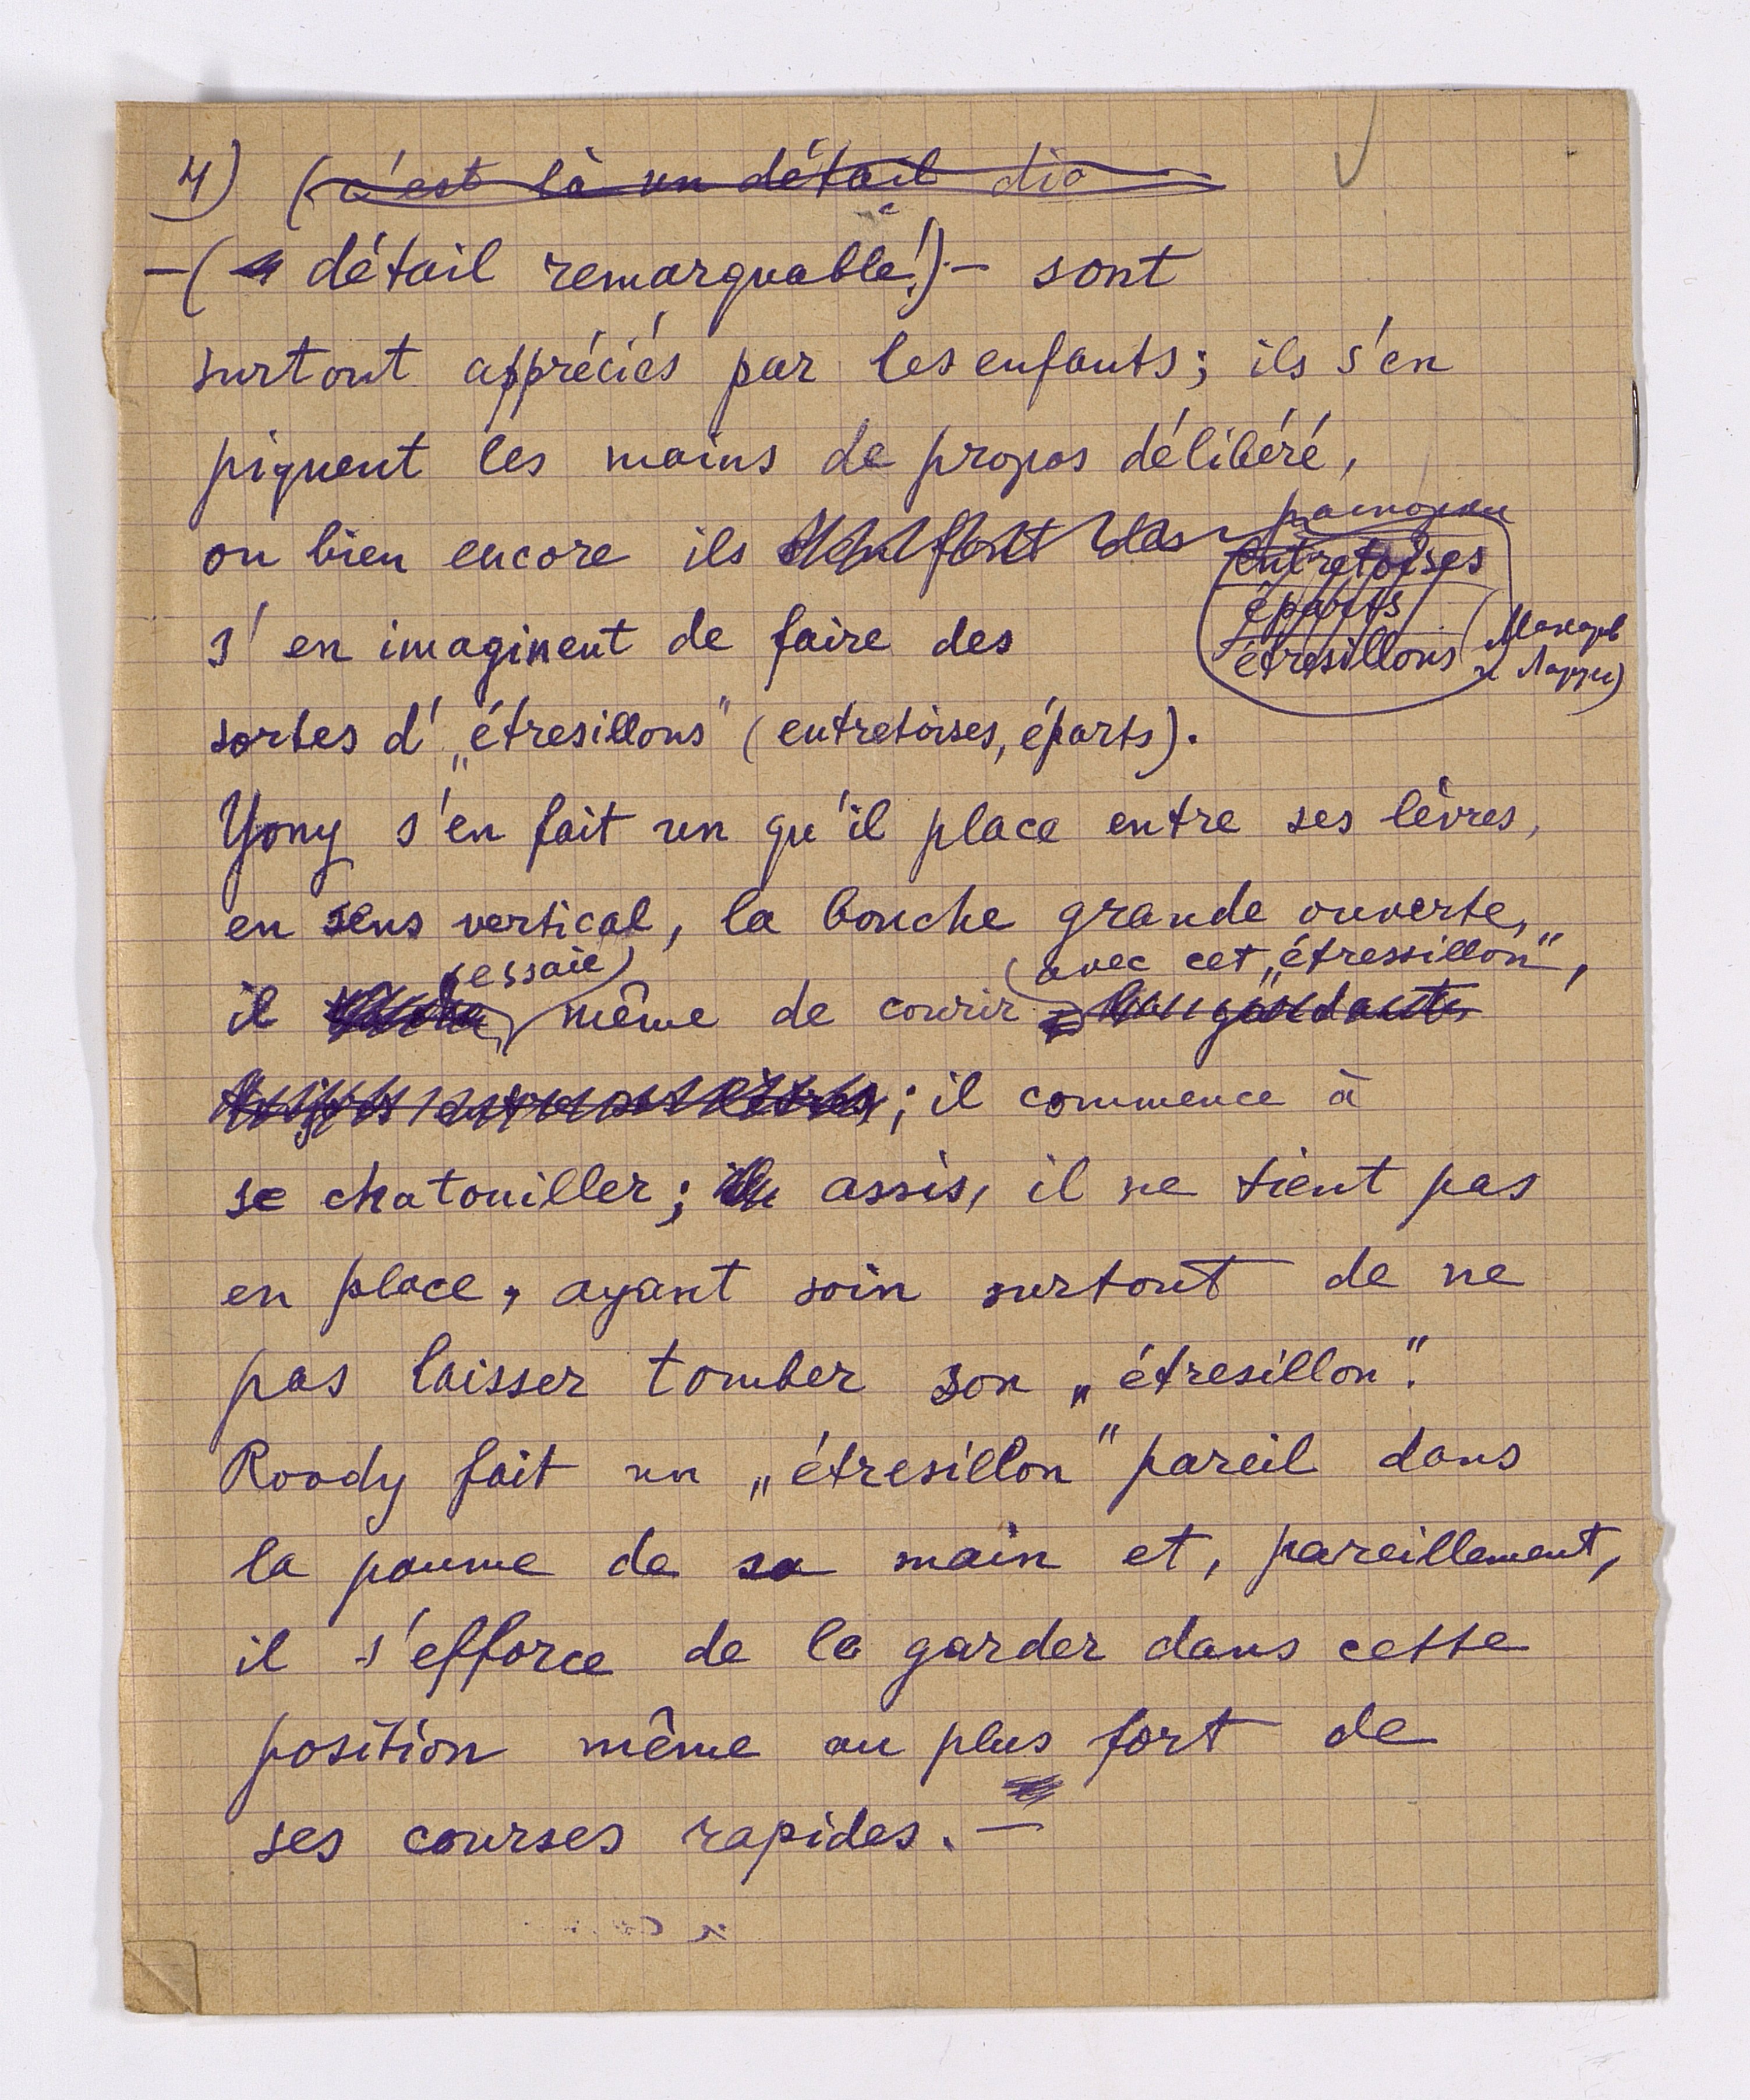 4) (c'est là un détail dio
—( détail remarquable!)— sont
surtout appréciés par les enfants; ils s'en
piquent les mains de propos délibéré,
ou bien encore ils s'en font des
entretoises
éparts
étresillons
s'en imaginent de faire des
sortes d' „étresillons" (entretoises, éparts).
Yony s'en fait un qu'il place entre ses lèvres,
en sens vertical, la bouche grande ouverte,
(essaie) (avec cet „étressillon",
il même de courir en gardant
; il commence à
se chatouiller; assis, il ne tient pas
en place, ayant soin surtout de ne
pas laisser tomber son „étresillon".
Roody fait un „étresillon" pareil dans
la paume de sa main et, pareillement,
il s'efforce de le garder dans cette
position même au plus fort de
ses courses rapides. —